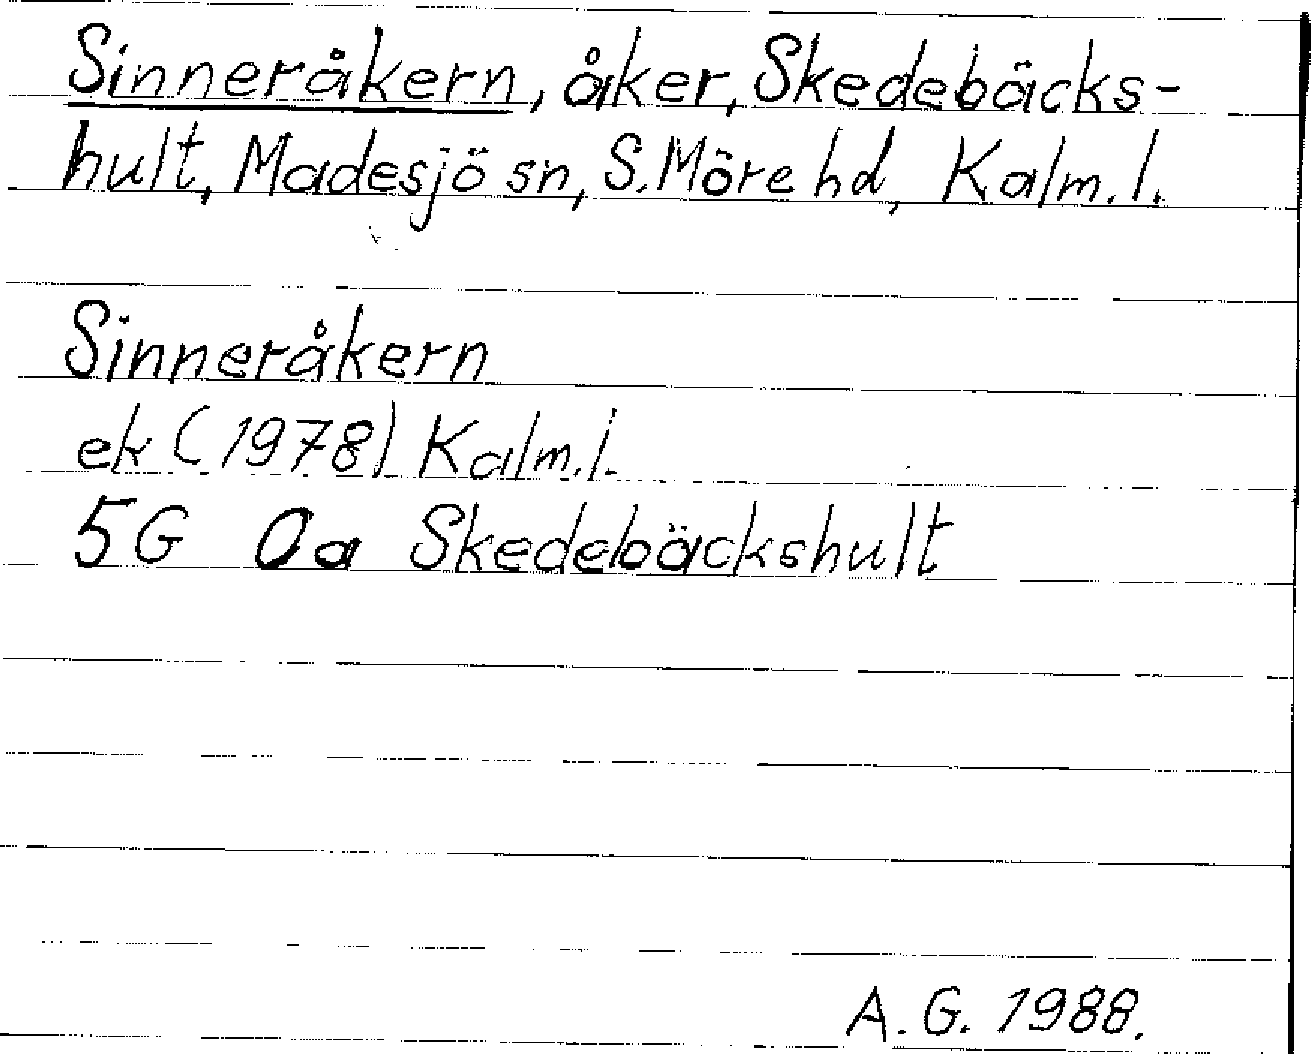 Sinneråkern, åker, Skedebäcks-
hult, Madesjö sn, S. Möre hd, Kalm. l.
Sinneråkern
ek (1978) Kalm. l.
5G 0a Skedebäckshult
A. G. 1988.